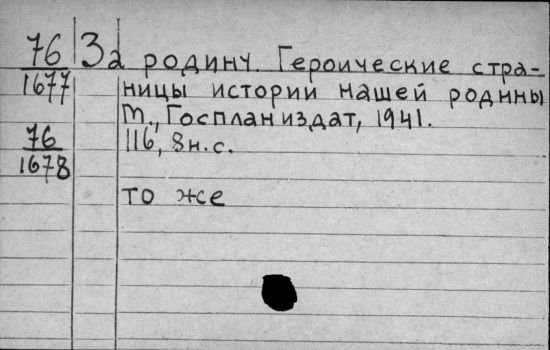 76 За родину. Героические стра-
1677 ницы истории нашей родины
М., Госпланиздат, 1941.
76 116, 8 н.с.
1678
то же